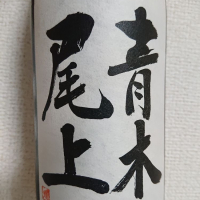 青木
尾上